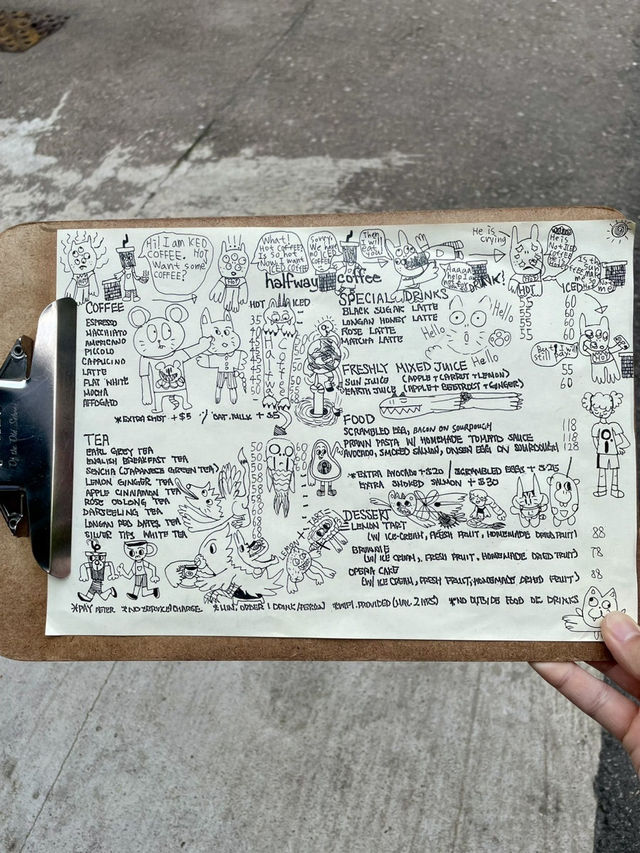 Hi! I am KED
COFFEE. HOT
Want some
COFFEE?
What!
Hot COFFEE
Is so hot
Now I want
ICED COFFEE
Sorry.
We has
no ICED
COFFEE
Then
I will
Eat
You!
He is
crying
halfway coffee
COFFEE
HOT ICED
ESPRESSO
MACCHIATO
AMERICANO
PICCOLO
CAPPUCINO
LATTE
FLAT WHITE
MOCHA
AFFOGATO
*EXTRA SHOT +$5 % OAT MILK +$5
TEA
EARL GREY TEA
ENGLISH BREAKFAST TEA
SENCHA (JAPANESE GREEN TEA)
LEMON GINGER TEA
APPLE CINNAMON TEA
ROSE OOLONG TEA
DARJEELING TEA
LONGAN RED DATES TEA
SILVER TIPS WHITE TEA
SPECIAL DRINKS
HOT ICED
BLACK SUGAR LATTE 55 60
LONGAN HONEY LATTE 55 60
ROSE LATTE 55 60
MATCHA LATTE 55 60
Hello
Hello
Hello
FRESHLY MIXED JUICE
SUN JUICE (APPLE + CARROT + LEMON) 55
EARTH JUICE (APPLE + BEETROOT + GINGER) 60
FOOD
SCRAMBLED EGG, BACON ON SOURDOUGH 118
PRAWN PASTA W/ HOMEMADE TOMATO SAUCE 118
AVOCADO, SMOKED SALMON, ONSEN EGG ON SOURDOUGH 128
*EXTRA AVOCADO +$20 / SCRAMBLED EGGS +$25
EXTRA SMOKED SALMON +$30
DESSERT
LEMON TART
(W/ ICE-CREAM, FRESH FRUIT, HOMEMADE DRIED FRUIT) 88
BROWNIE
(W/ ICE CREAM, FRESH FRUIT, HOMEMADE DRIED FRUIT) 78
OPERA CAKE
(W/ ICE CREAM, FRESH FRUIT, HOMEMADE DRIED FRUIT) 88
*PAY AFTER *NO SERVICE CHARGE *MIN. ORDER 1 DRINK/PERSON *WIFI PROVIDED (MAX. 2 HRS) *NO OUTSIDE FOOD OR DRINKS